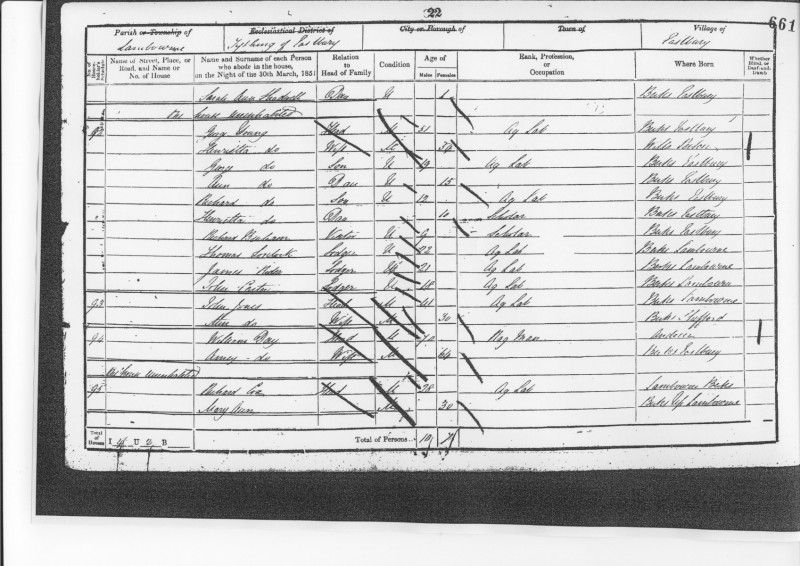 22
661
Parish or Township of Ecclesiastical District of City or Borough of Town of Village of
Lambourne Tything of Eastbury Eastbury
No. of House-holder's Schedule Name of Street, Place, or Road, and Name or No. of House Name and Surname of each Person who abode in the house, on the Night of the 30th March, 1851 Relation to Head of Family Condition Age of Males Females Rank, Profession, or Occupation Where Born Whether Blind, or Deaf-and-Dumb
Sarah Ann Dau U 1 Berks Eastbury
One house uninhabited
92 Young Head M 51 Ag Lab Berks Eastbury
Henrietta do Wife M Wilts
do Son U 19 Ag Lab Berks Eastbury
Ann do Dau U 15 Berks Eastbury
Richard do Son U 12 Ag Lab Berks Eastbury
Henrietta do Dau 10 Scholar Berks Eastbury
Richard Visitor U 9 Scholar Berks Eastbury
Thomas Lodger U 22 Ag Lab Berks Lambourne
James Lodger U 21 Ag Lab Berks Lambourne
John Lodger U 48 Ag Lab Berks Lambourn
93 John Jones Head M 41 Ag Lab Berks Lambourne
Ann do Wife M 30 Berks Shefford
94 William Day Head M 70 Rag Man Andover
do Wife M 64 Berks Eastbury
house uninhabited
95 Richard Cox Head M 28 Ag Lab Lambourne Berks
Mary Ann M 30 Berks Up Lambourne
Total of Houses I 4 U 2 B Total of Persons 10